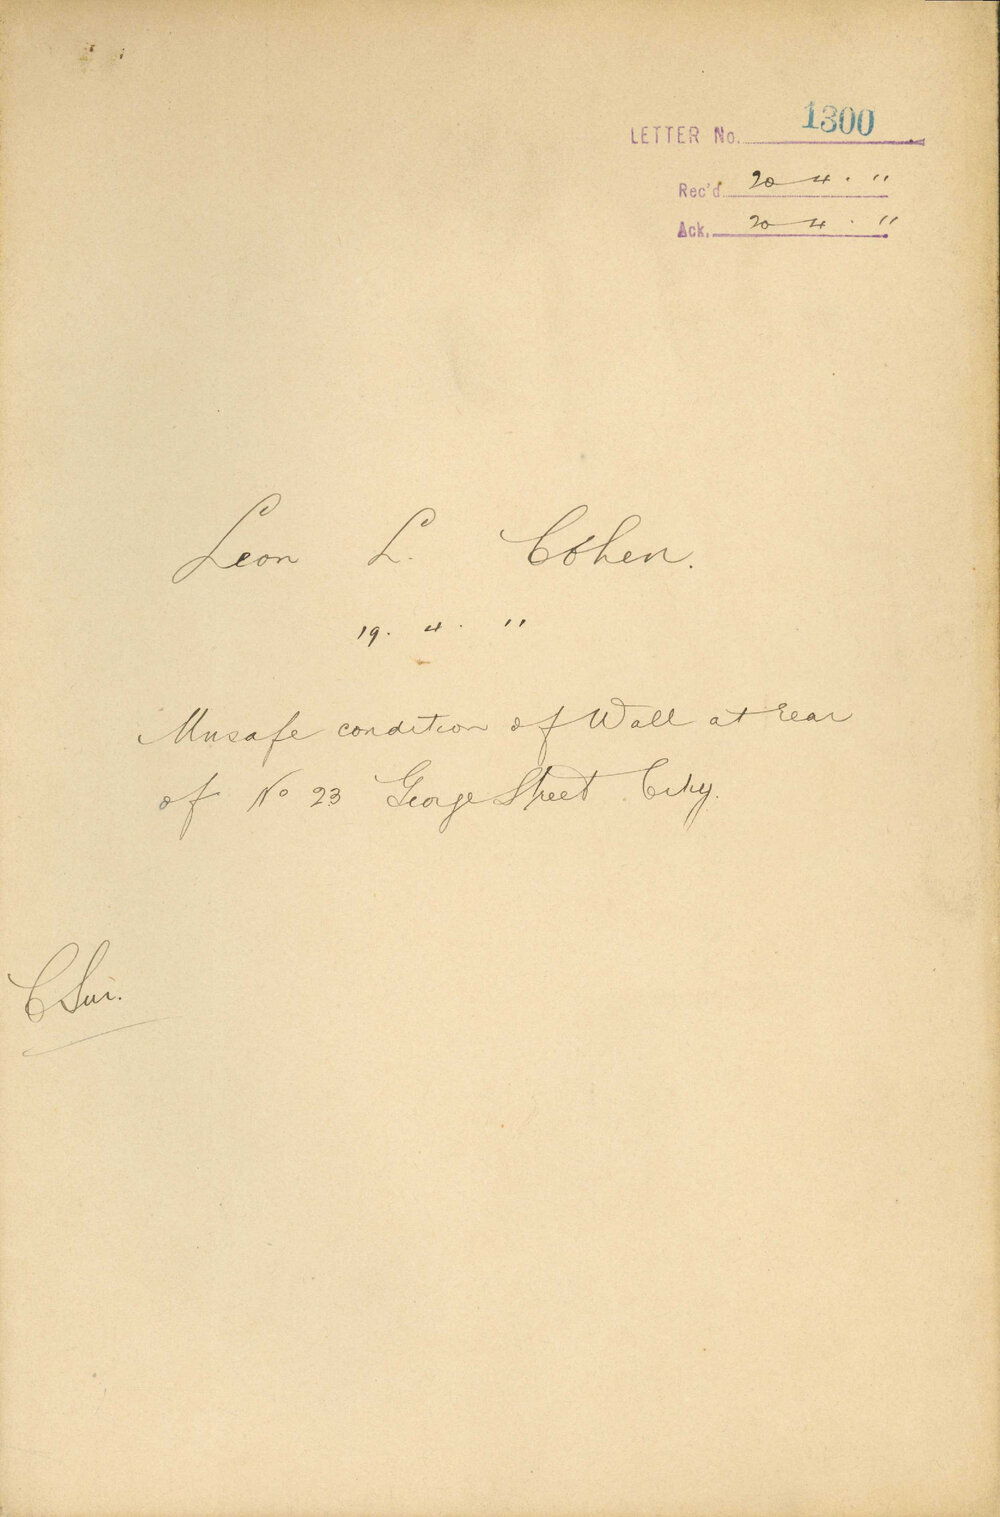 LETTER No. 1300
Rec'd 20 4. "
Ack. 20 4. "
Leon L. Cohen.
19. 4. "
Unsafe condition of Wall at rear
of No 23 George Street City.
C Sur.